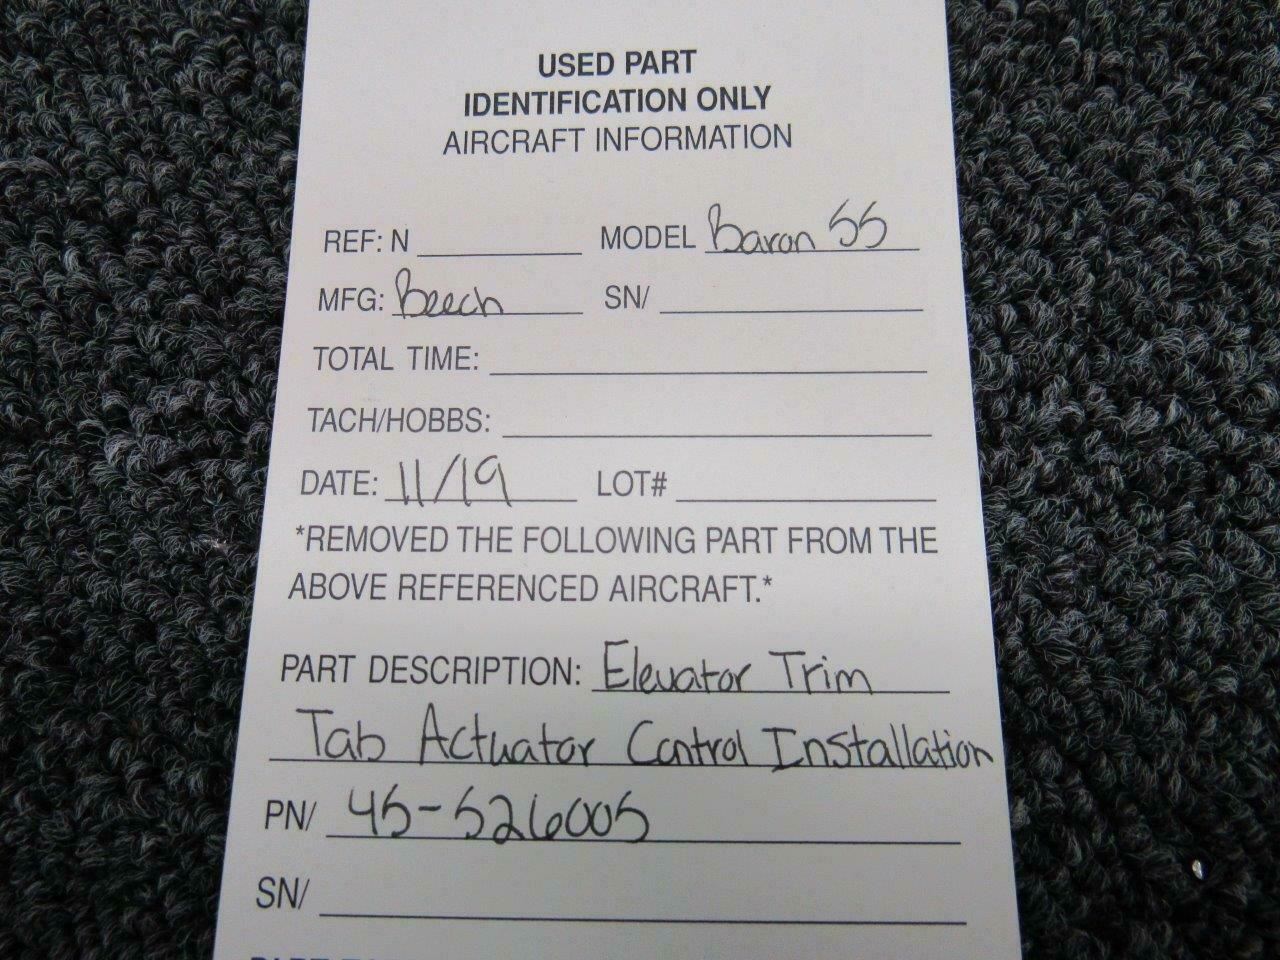 USED PART
IDENTIFICATION ONLY
AIRCRAFT INFORMATION
REF: N MODEL Baron 55
MFG: Beech SN/
TOTAL TIME:
TACH/HOBBS:
DATE: 11/19 LOT#
*REMOVED THE FOLLOWING PART FROM THE
ABOVE REFERENCED AIRCRAFT.*
PART DESCRIPTION: Elevator Trim
Tab Actuator Control Installation
PN/ 45-526005
SN/